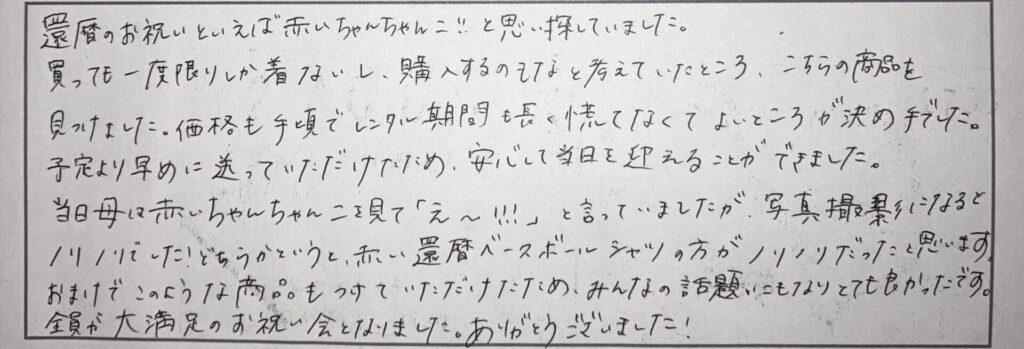 還暦のお祝いといえば赤いちゃんちゃんこ!!と思い探していました。
買っても一度限りしか着ないし、購入するのもなと考えていたところ、こちらの商品を
見つけました。価格も手頃でレンタル期間も長く慌てなくてよいところが決め手でした。
予定より早めに送っていただけたため、安心して当日を迎えることができました。
当日母は赤いちゃんちゃんこを見て「え〜!!!」と言っていましたが、写真撮影になると
ノリノリでした!どちらかというと、赤い還暦ベースボールシャツの方がノリノリだったと思います。
おまけでこのような商品もつけていただけたため、みんなの話題にもなりとても良かったです。
全員が大満足のお祝い会となりました。ありがとうございました!